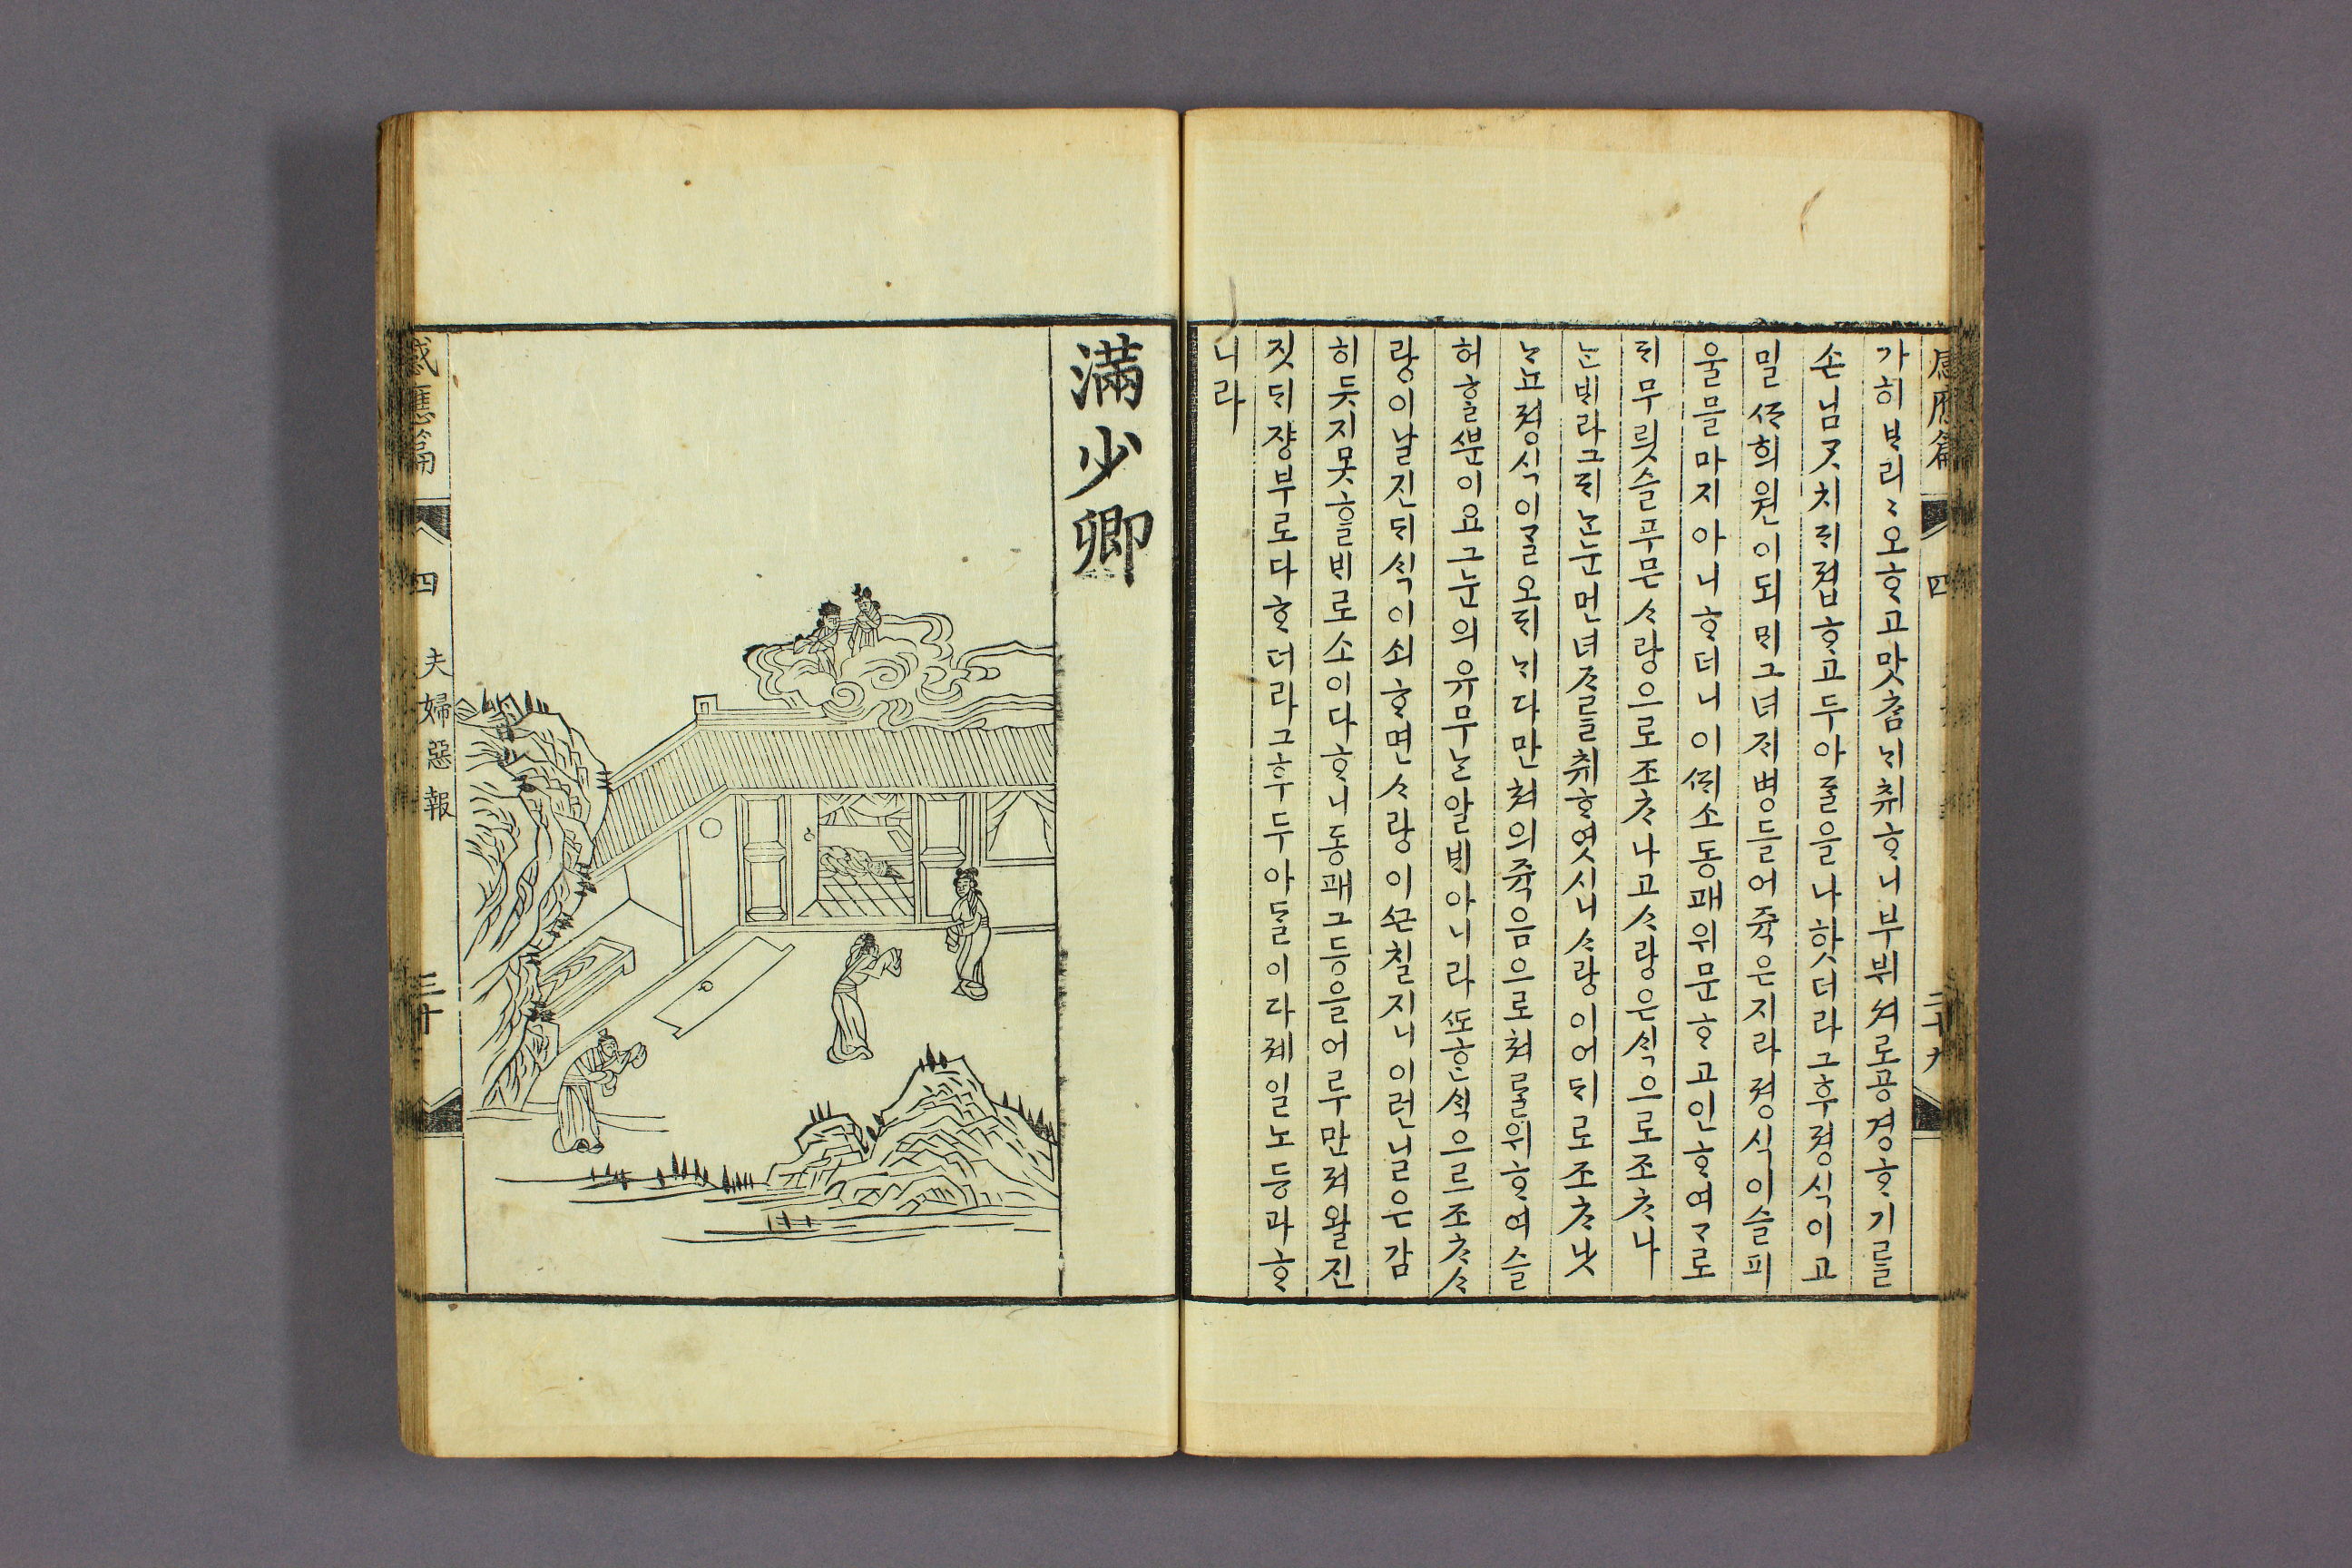 가히 ᄇᆞ리리오 ᄒᆞ고 맛ᄎᆞᆷᄂᆡ 취ᄒᆞ니 부뷔 셔로 공경ᄒᆞ기를
손님ᄀᆞᆺ치 ᄃᆡ졉ᄒᆞ고 두 아ᄃᆞᆯ을 나핫더라 그 후 졍식이 고
밀 ᄯᅡ희 원이 되ᄆᆡ 그 녀ᄌᆡ 병들어 쥭은지라 졍식이 슬피
울믈 마지 아니ᄒᆞ더니 이 ᄯᆡ 소동패 위문ᄒᆞ고 인ᄒᆞ여 ᄀᆞ로
ᄃᆡ 무릇 슬푸믄 ᄉᆞ랑으로 조ᄎᆞ나고 ᄉᆞ랑은 ᄉᆡᆨ으로 조ᄎᆞ나
ᄂᆞᆫ ᄇᆡ라 그ᄃᆡᄂᆞᆫ 눈먼 녀ᄌᆞ를 취ᄒᆞ엿시니 ᄉᆞ랑이 어ᄃᆡ로 조ᄎᆞ낫
ᄂᆞ뇨 졍식이 ᄀᆞᆯ오ᄃᆡ ᄂᆡ 다만 쳐의 쥭음으로 쳐를 위ᄒᆞ여 슬
허ᄒᆞᆯ ᄲᅮᆫ이요 그 눈의 유무ᄂᆞᆫ 알 ᄇᆡ 아니라 ᄯᅩᄒᆞᆫ ᄉᆡᆨ으르 조ᄎᆞ ᄉᆞ
랑이 날진ᄃᆡ ᄉᆡᆨ이 쇠ᄒᆞ면 ᄉᆞ랑이 ᄭᅳᆫ칠지니 이런 닐은 감
히 듯지 못ᄒᆞᆯ ᄇᆡ로소이다 ᄒᆞ니 동패 그 등을 어루만져 왈 진
짓 ᄃᆡ쟝부로다 ᄒᆞ더라 그 후 두 아ᄃᆞᆯ이 다 졔일노 등과ᄒᆞ
니라
感應篇 四 二十九
滿少卿
感應篇 四 夫婦惡報 三十